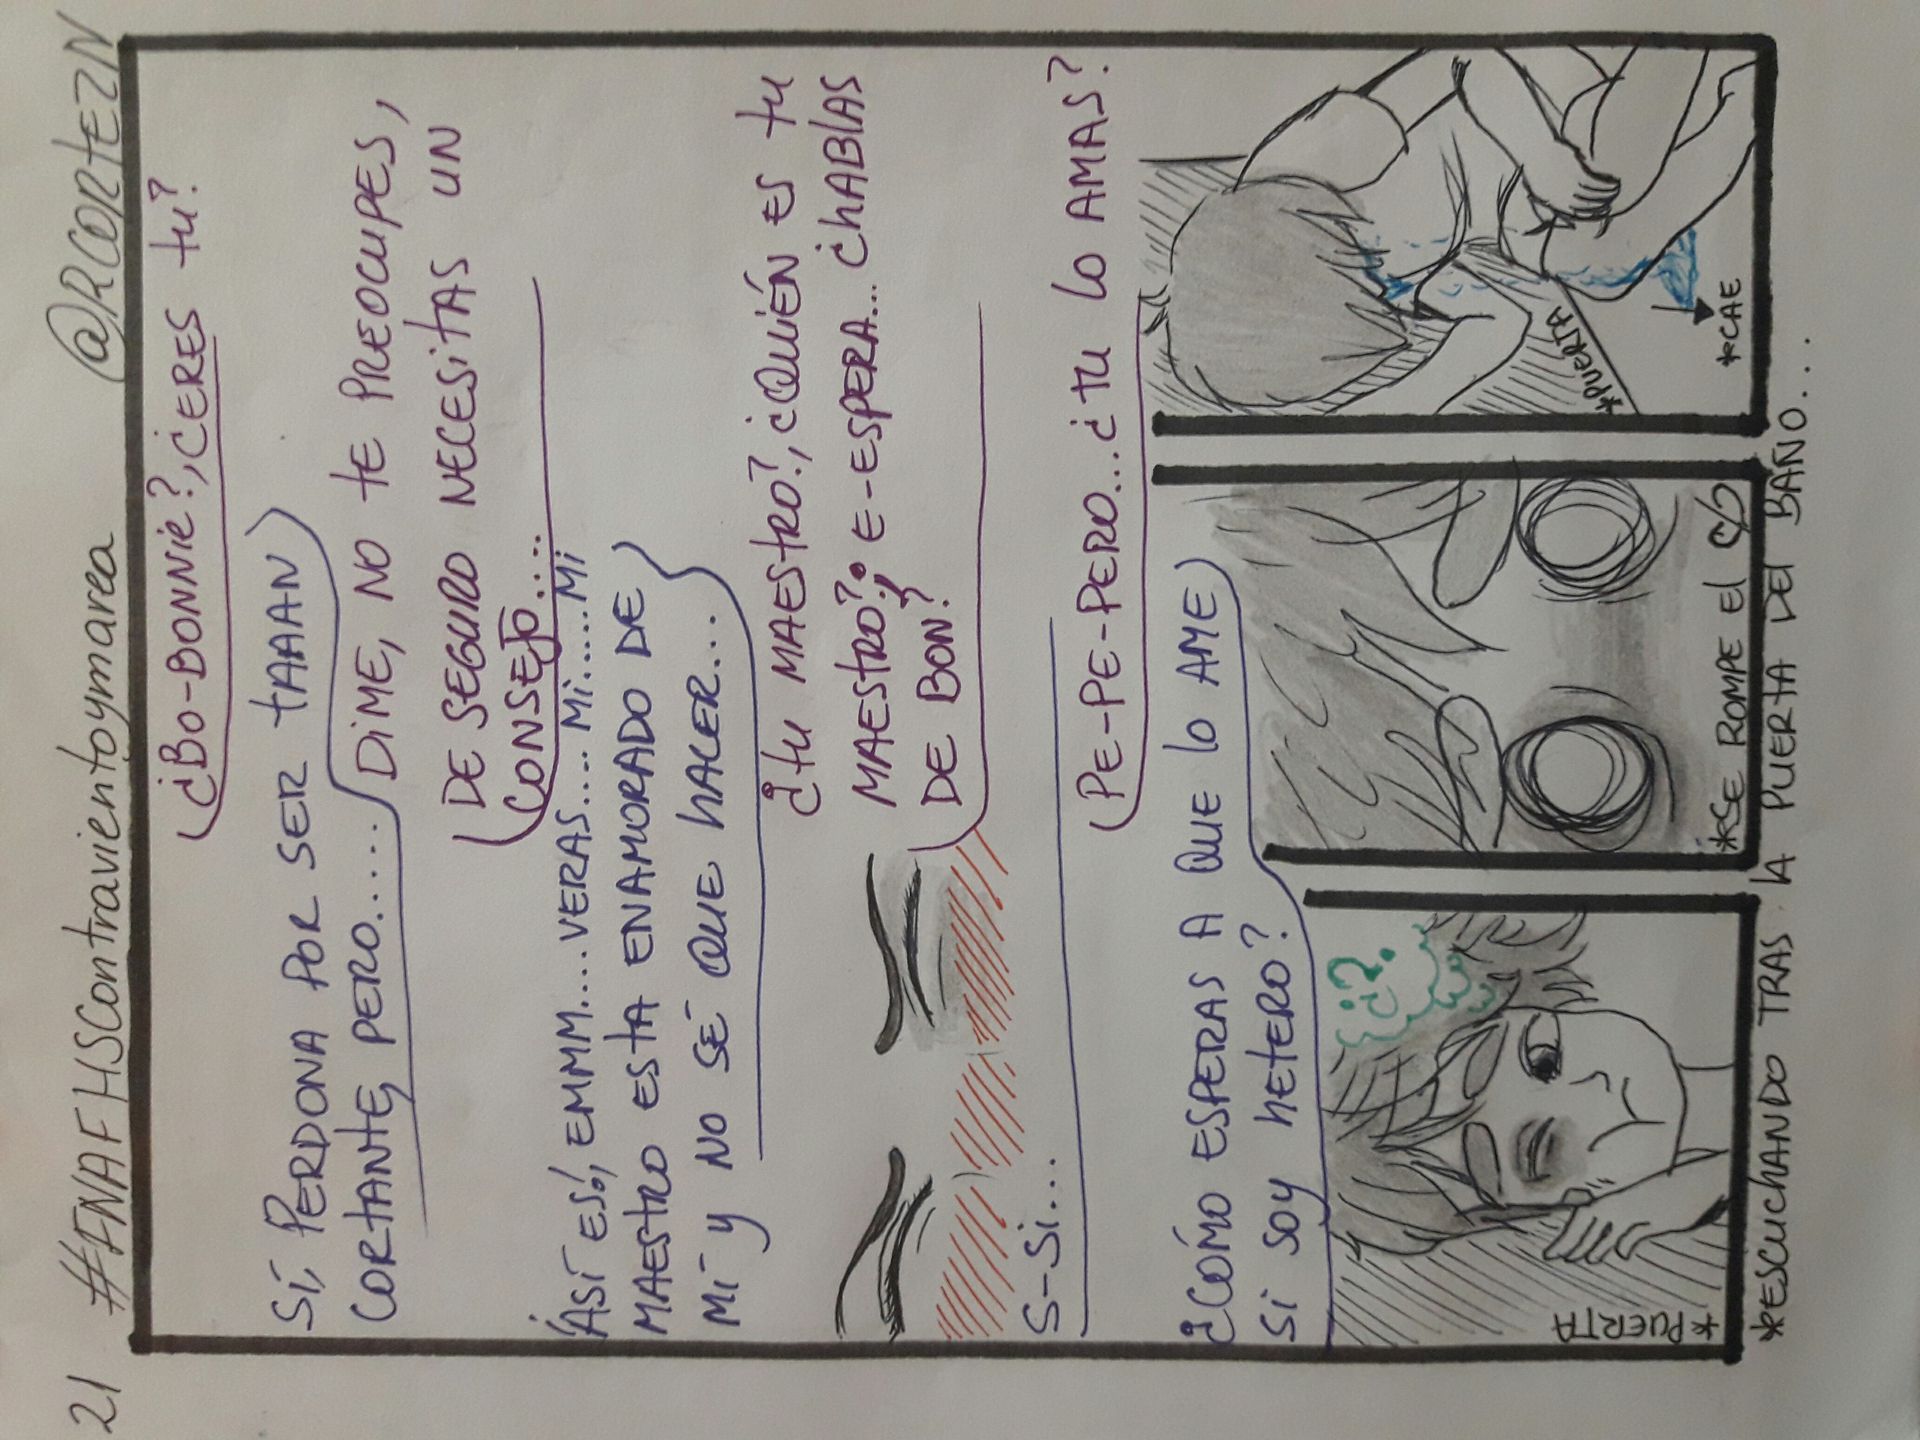 21 #FNAFHSContravientoymarea @RCORtEZN
¿BO-BONNiE?, ¿ERES tu?
SÍ, PERDONA POR SER tAAAN
CORtANtE, PERO.....
DiME, NO tE PREOCUPES,
DE SEGURO NECESitAS UN
CONSEJO....
ASÍ ES, EMMM....VERAS....Mi.....Mi......Mi
MAEStRO EStA ENAMORADO DE
MÍ y NO SÉ QUE hACER...
¿tu MAEStRO?, ¿QUIÉN ES tu
MAEStRO?. E-ESPERA... ¿hABlAS
DE BON?
S-Si...
PE-PE-PERO...¿tu lO AMAS?
¿CÓMO ESPERAS A QUE lO AME
Si SOy hEtERO?
¿?
*PUERtA
*SE ROMPE El
*PUERtA
*CAE
*ESCUChANDO tRAS lA PUERtA DEl BAÑO...